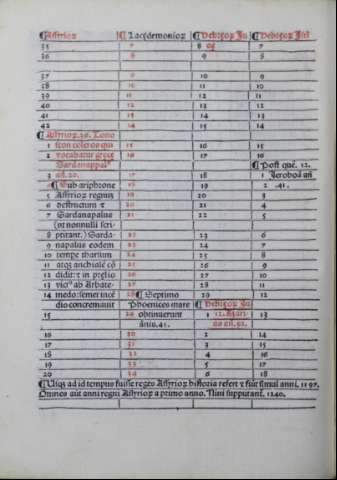 ¶Assyrioꝝ ¶Lacedemonioꝝ ¶Hebreoꝝ Ju ¶Hebreoꝝ Isrl
35 7 8 7
36 8 9 8
37 9 10 9
38 10 11 10
39 11 12 11
40 12 13 12
41 13 14 13
42 14 15 14
¶Assyrioꝝ.36.Tono
1 scon coleros qui 15 16 15
2 vocabatur grece 16 17 16
Sardanappalꝰ ¶Post quē. 12.
3 añ.20. 17 18 1 Jeroboā añ
4 ¶Sub ariphrone 18 19 2 .41.
5 Assyrioꝝ regnuꝫ 19 20 3
6 destructum ⁊ 20 21 4
7 Sardanapalus 21 22 5
(ot nonnulli scri-
8 ptitant.) Sarda- 22 23 6
9 napalus eodem 23 24 7
10 tempe tharsum 24 25 8
11 atqꝫ anchialē cō 25 26 9
12 didit: ⁊ in prelio 26 27 10
13 victꝰ ab Arbate- 27 28 11
14 medo: semet incē 28 ¶Septimo 29 12
dio concremauit Phoenices mare ¶Hebreoꝝ Ju
15 29 obtinuerunt 1 12. 13
ānis.45. añ.52.
16 30 2 14
17 31 3 15
18 32 4 16
19 33 5 17
20 34 6 18
¶Usqꝫ ad id tempus fuisse reges Assyrioꝝ historia refert ⁊ fiūt simul anni. 1197.
Omnes aūt anni regni Assyrioꝝ a primo anno. Nini supputant̄. 1240.